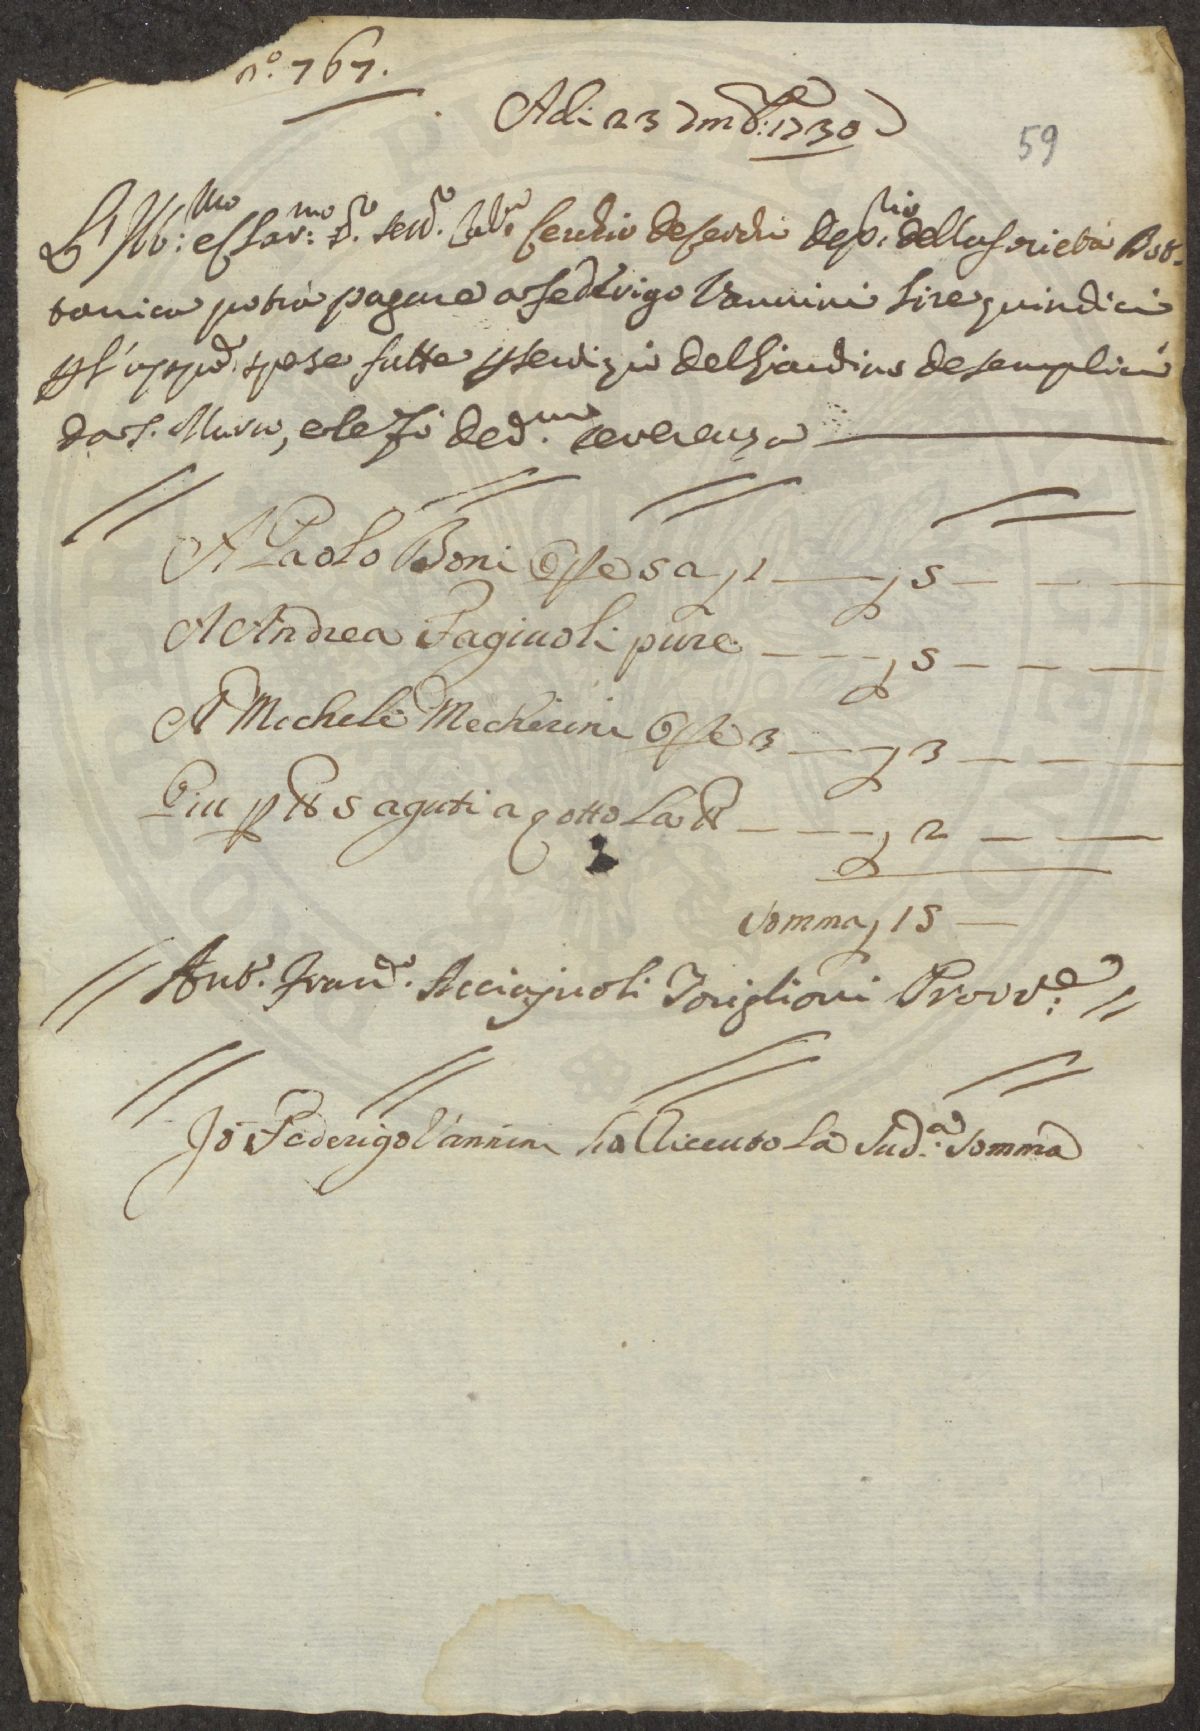 n.º 767.
Adi 23 7mbre: 1730
59
L'Ill:mo e Clar:mo Sendio de Serdi Dep:rio della Società Bot-
tanica potrà pagare a Federigo Vannini lire quindici
p l'appiè spese fatte p servizio del Giardino de semplici
da S. Marco, e le fò ded.ma reverenza
A Paolo Boni Opre 5 a £ 1 — £ 5 — — —
A Andrea Fagiuoli pure — — £ 5 — — —
A Michele Mecherini Opre 3 — £ 3 — — —
Piu p ℔ 5 aguti a 8 otto La ℔ — — — £ 2 — —
Somma £ 15 —
Anto. Franco. Acciajuoli Toriglioni Provvre:
Io Federigo Vannini ho Riceuto La Sud.a Somma